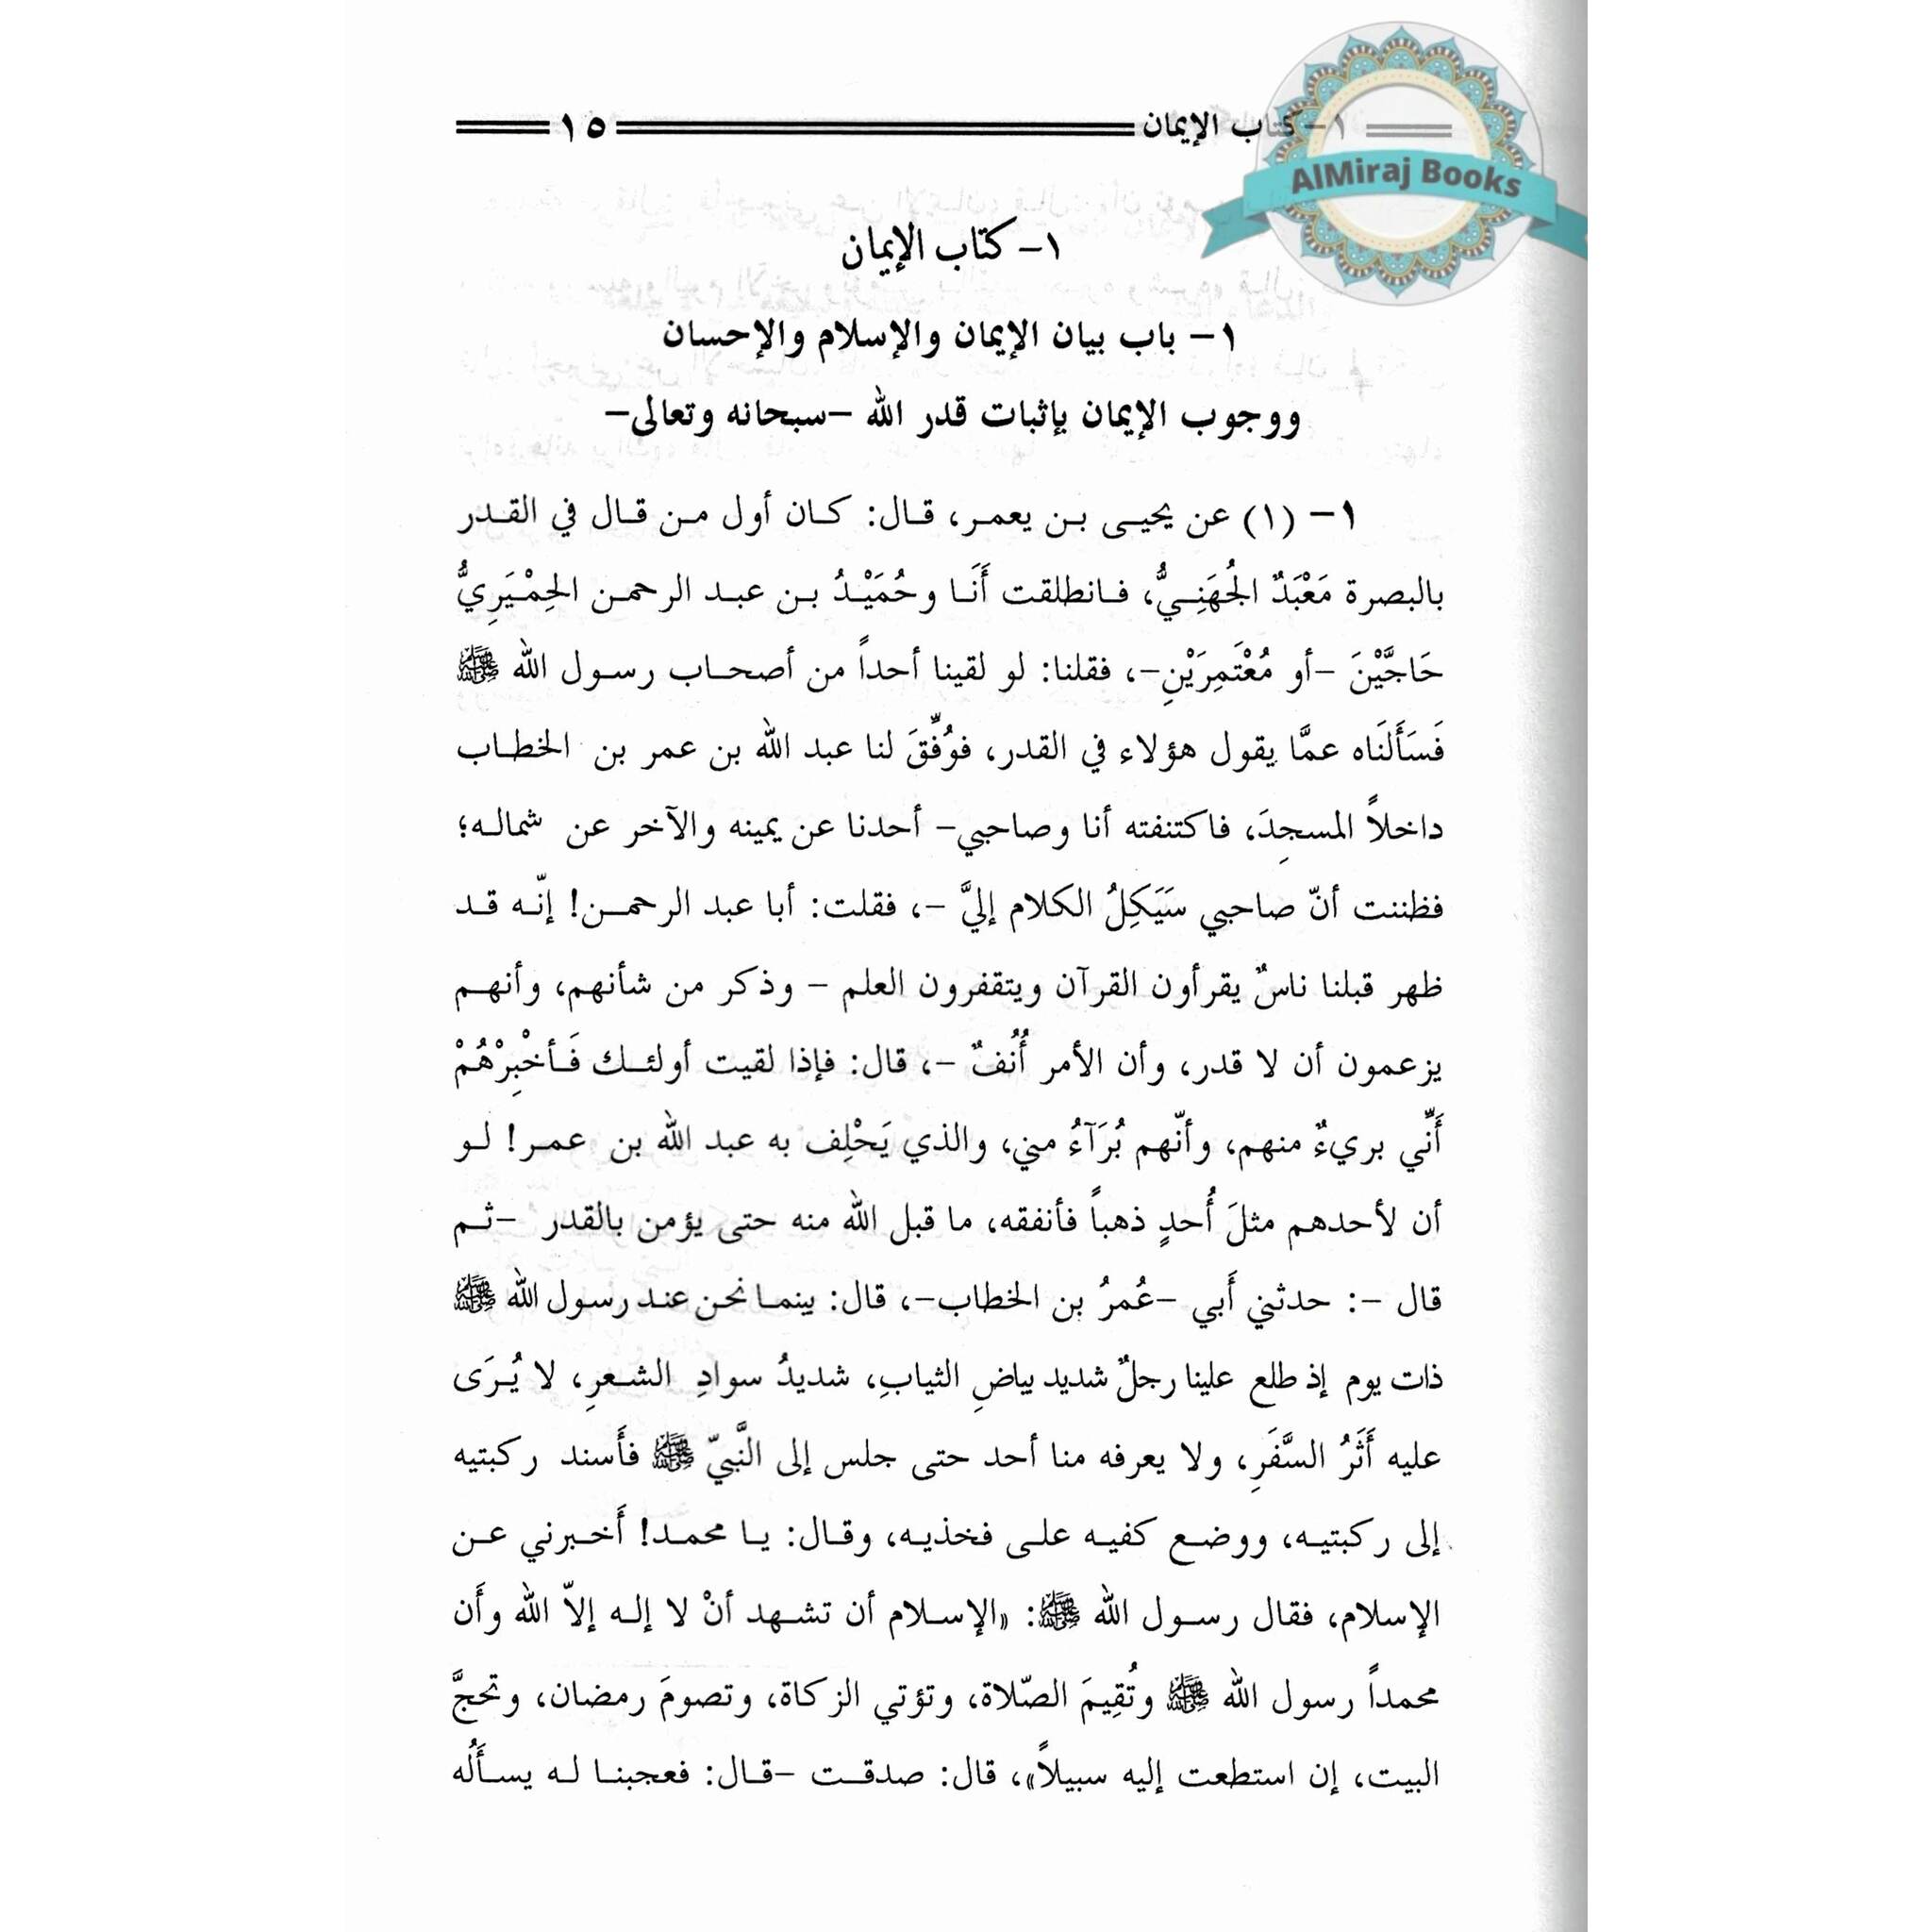 ١- كتاب الإيمان ١٥
AlMiraj Books
١- كتاب الإيمان
١- باب بيان الإيمان والإسلام والإحسان
ووجوب الإيمان بإثبات قدر الله -سبحانه وتعالى-
١- (١) عن يحيى بن يعمر، قال: كان أول من قال في القدر
بالبصرة مَعْبَدٌ الجُهَنِيُّ، فانطلقت أَنَا وحُمَيْدُ بن عبد الرحمن الحِمْيَرِيُّ
حَاجَّيْنَ -أو مُعْتَمِرَيْنِ-، فقلنا: لو لقينا أحداً من أصحاب رسول الله ﷺ
فَسَأَلَنَاه عمَّا يقول هؤلاء في القدر، فوُفِّقَ لنا عبد الله بن عمر بن الخطاب
داخلاً المسجِدَ، فاكتنفته أنا وصاحبي- أحدنا عن يمينه والآخر عن شماله؛
فظننت أنّ صاحبي سَيَكِلُ الكلام إليَّ -، فقلت: أبا عبد الرحمن! إنّه قد
ظهر قبلنا ناسٌ يقرأون القرآن ويتقفرون العلم - وذكر من شأنهم، وأنهم
يزعمون أن لا قدر، وأن الأمر أُنُفٌ -، قال: فإذا لقيت أولئك فَأخْبِرْهُمْ
أَنِّي بريءٌ منهم، وأنّهم بُرَآءُ مني، والذي يَحْلِف به عبد الله بن عمر! لو
أن لأحدهم مثلَ أُحدٍ ذهباً فأنفقه، ما قبل الله منه حتى يؤمن بالقدر -ثم
قال -: حدثني أَبي -عُمرُ بن الخطاب-، قال: بينما نحن عند رسول الله ﷺ
ذات يوم إذ طلع علينا رجلٌ شديد بياضِ الثيابِ، شديدُ سوادِ الشعرِ، لا يُرَى
عليه أَثَرُ السَّفَرِ، ولا يعرفه منا أحد حتى جلس إلى النَّبيّ ﷺ فأَسند ركبتيه
إلى ركبتيه، ووضع كفيه على فخذيه، وقال: يا محمد! أَخبرني عن
الإسلام، فقال رسول الله ﷺ: «الإسلام أن تشهد أنْ لا إله إلاّ الله وأَن
محمداً رسول الله ﷺ وتُقِيمَ الصّلاة، وتؤتي الزكاة، وتصومَ رمضان، وتحجَّ
البيت، إن استطعت إليه سبيلاً»، قال: صدقت -قال: فعجبنا له يسأَلُه